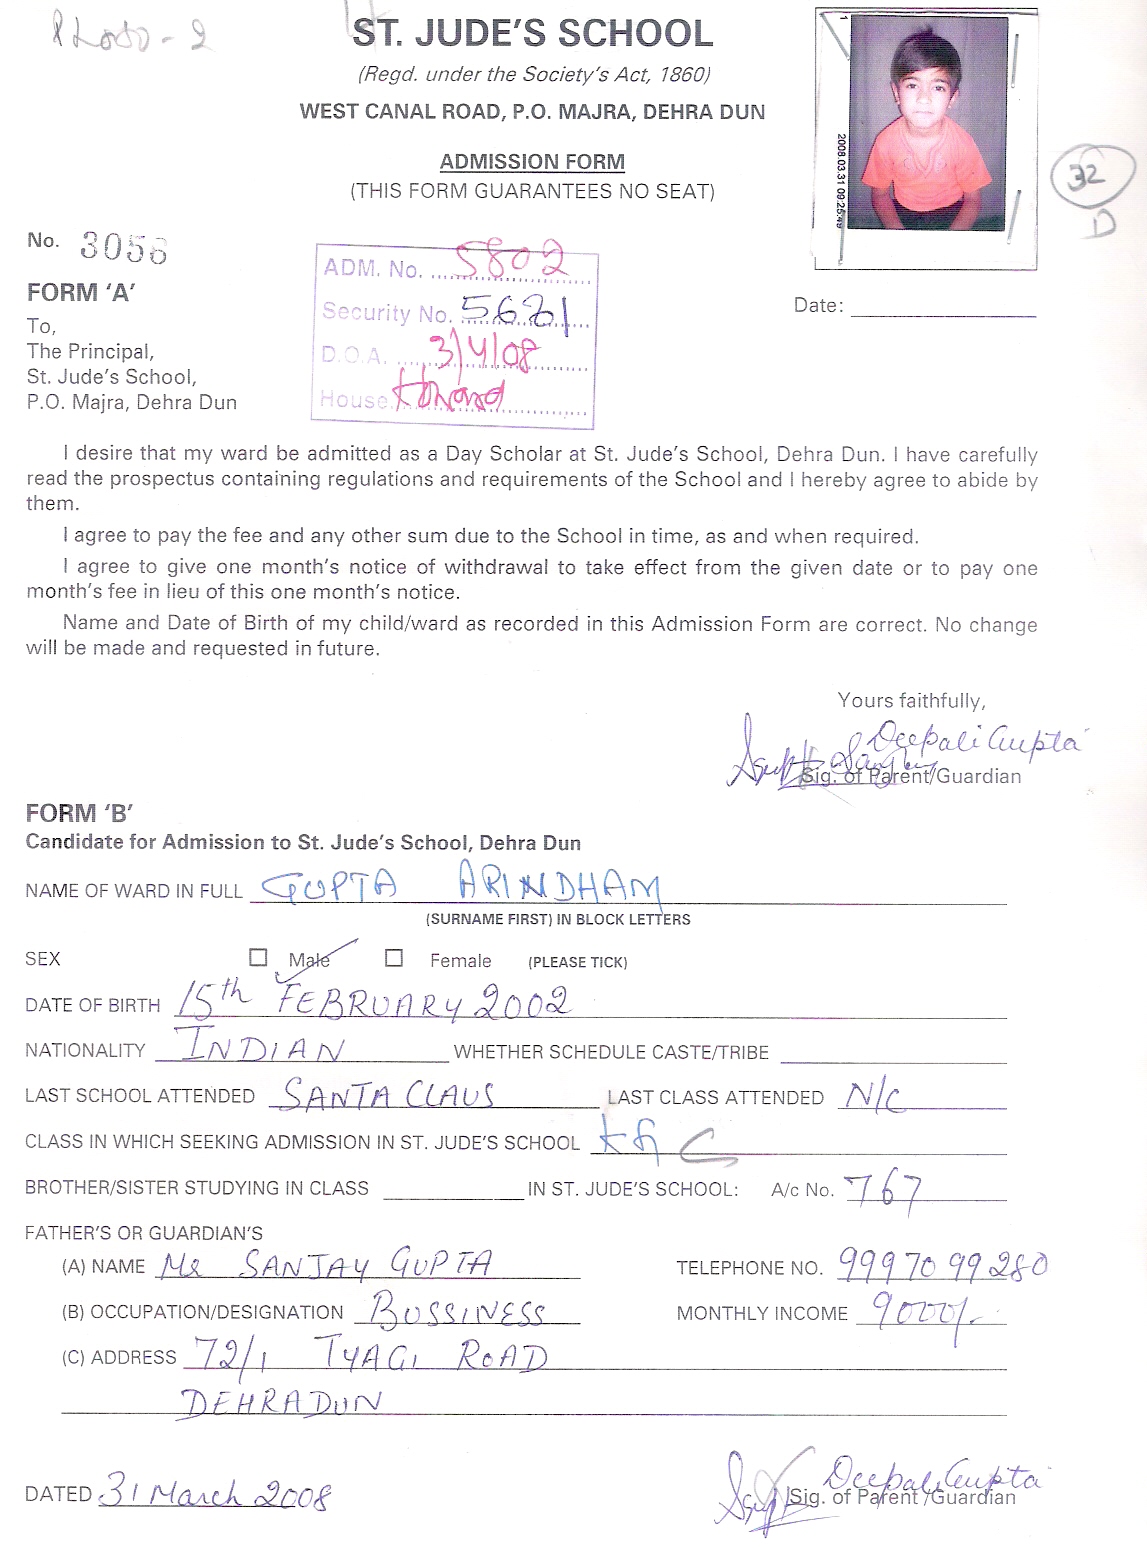 ST. JUDE'S SCHOOL
(Regd. under the Society's Act, 1860)
WEST CANAL ROAD, P.O. MAJRA, DEHRA DUN
ADMISSION FORM
(THIS FORM GUARANTEES NO SEAT)
2008.03.31 09:25
32
D
No. 3056
ADM. No. 5802
Security No. 5621
D.O.A. 3/4/08
House
FORM 'A'
Date:
To,
The Principal,
St. Jude's School,
P.O. Majra, Dehra Dun
I desire that my ward be admitted as a Day Scholar at St. Jude's School, Dehra Dun. I have carefully
read the prospectus containing regulations and requirements of the School and I hereby agree to abide by
them.
I agree to pay the fee and any other sum due to the School in time, as and when required.
I agree to give one month's notice of withdrawal to take effect from the given date or to pay one
month's fee in lieu of this one month's notice.
Name and Date of Birth of my child/ward as recorded in this Admission Form are correct. No change
will be made and requested in future.
Yours faithfully,
Deepali Gupta
Sig. of Parent/Guardian
FORM 'B'
Candidate for Admission to St. Jude's School, Dehra Dun
NAME OF WARD IN FULL GUPTA ARINDHAM
(SURNAME FIRST) IN BLOCK LETTERS
SEX Male Female (PLEASE TICK)
DATE OF BIRTH 15th FEBRUARY 2002
NATIONALITY INDIAN WHETHER SCHEDULE CASTE/TRIBE
LAST SCHOOL ATTENDED SANTA CLAUS LAST CLASS ATTENDED N/C
CLASS IN WHICH SEEKING ADMISSION IN ST. JUDE'S SCHOOL KG C
BROTHER/SISTER STUDYING IN CLASS IN ST. JUDE'S SCHOOL: A/c No. 767
FATHER'S OR GUARDIAN'S
(A) NAME Mr SANJAY GUPTA TELEPHONE NO. 9997099280
(B) OCCUPATION/DESIGNATION BUSSINESS MONTHLY INCOME 9000/-
(C) ADDRESS 72/1 TYAGI ROAD
DEHRADUN
DATED 31 March 2008
Deepali Gupta
Sig. of Parent/Guardian